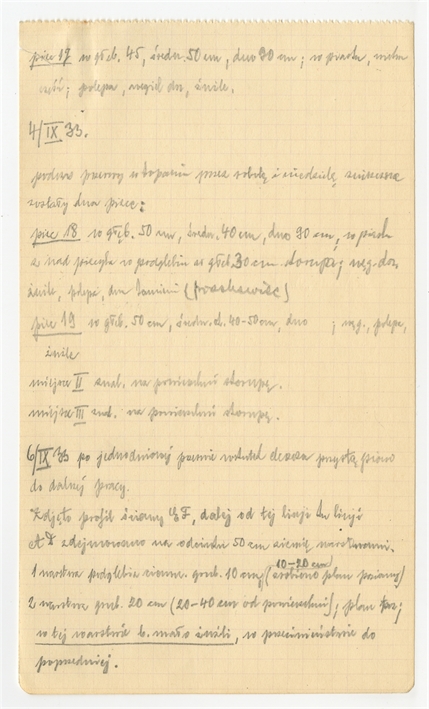 piec 17 w głęb. 45, średn. 50 cm, dno 30 cm; w piasku,
część; polepa, węgiel drz, żużle.
4/IX 33.
podczas przerwy w kopaniu przez sobotę i niedzielę zniszczone
zostały dwa piece:
piec 18 w głęb. 50 cm, średn. 40 cm, dno 30 cm, w piasku
a nad piecykiem w podglebiu w głęb. 30 cm skorupy; węg. drz,
żużle, polepa, dwa kamienie (piaskowiec)
piec 19 w głęb. 50 cm, średn. ok. 40-50 cm, dno ; węg., polepa,
żużle
miejsce II znal. na powierzchni skorupę.
miejsce III znal. na powierzchni skorupę.
6/IX 33 po jednodniowej przerwie wskutek deszczu
do dalszej pracy.
Zdjęto profil ściany EF, dalej od tej linji do linji
AD zdejmowano na odcinku 50 cm ziemię warstwami.
1 warstwa podglebia ciemn. grub. 10 cm, (zrobiono plan poziomy)
10-20 cm
2 warstwa grub. 20 cm (20-40 cm od powierzchni); plan
w tej warstwie b. mało żużli, w przeciwieństwie do
poprzedniej.